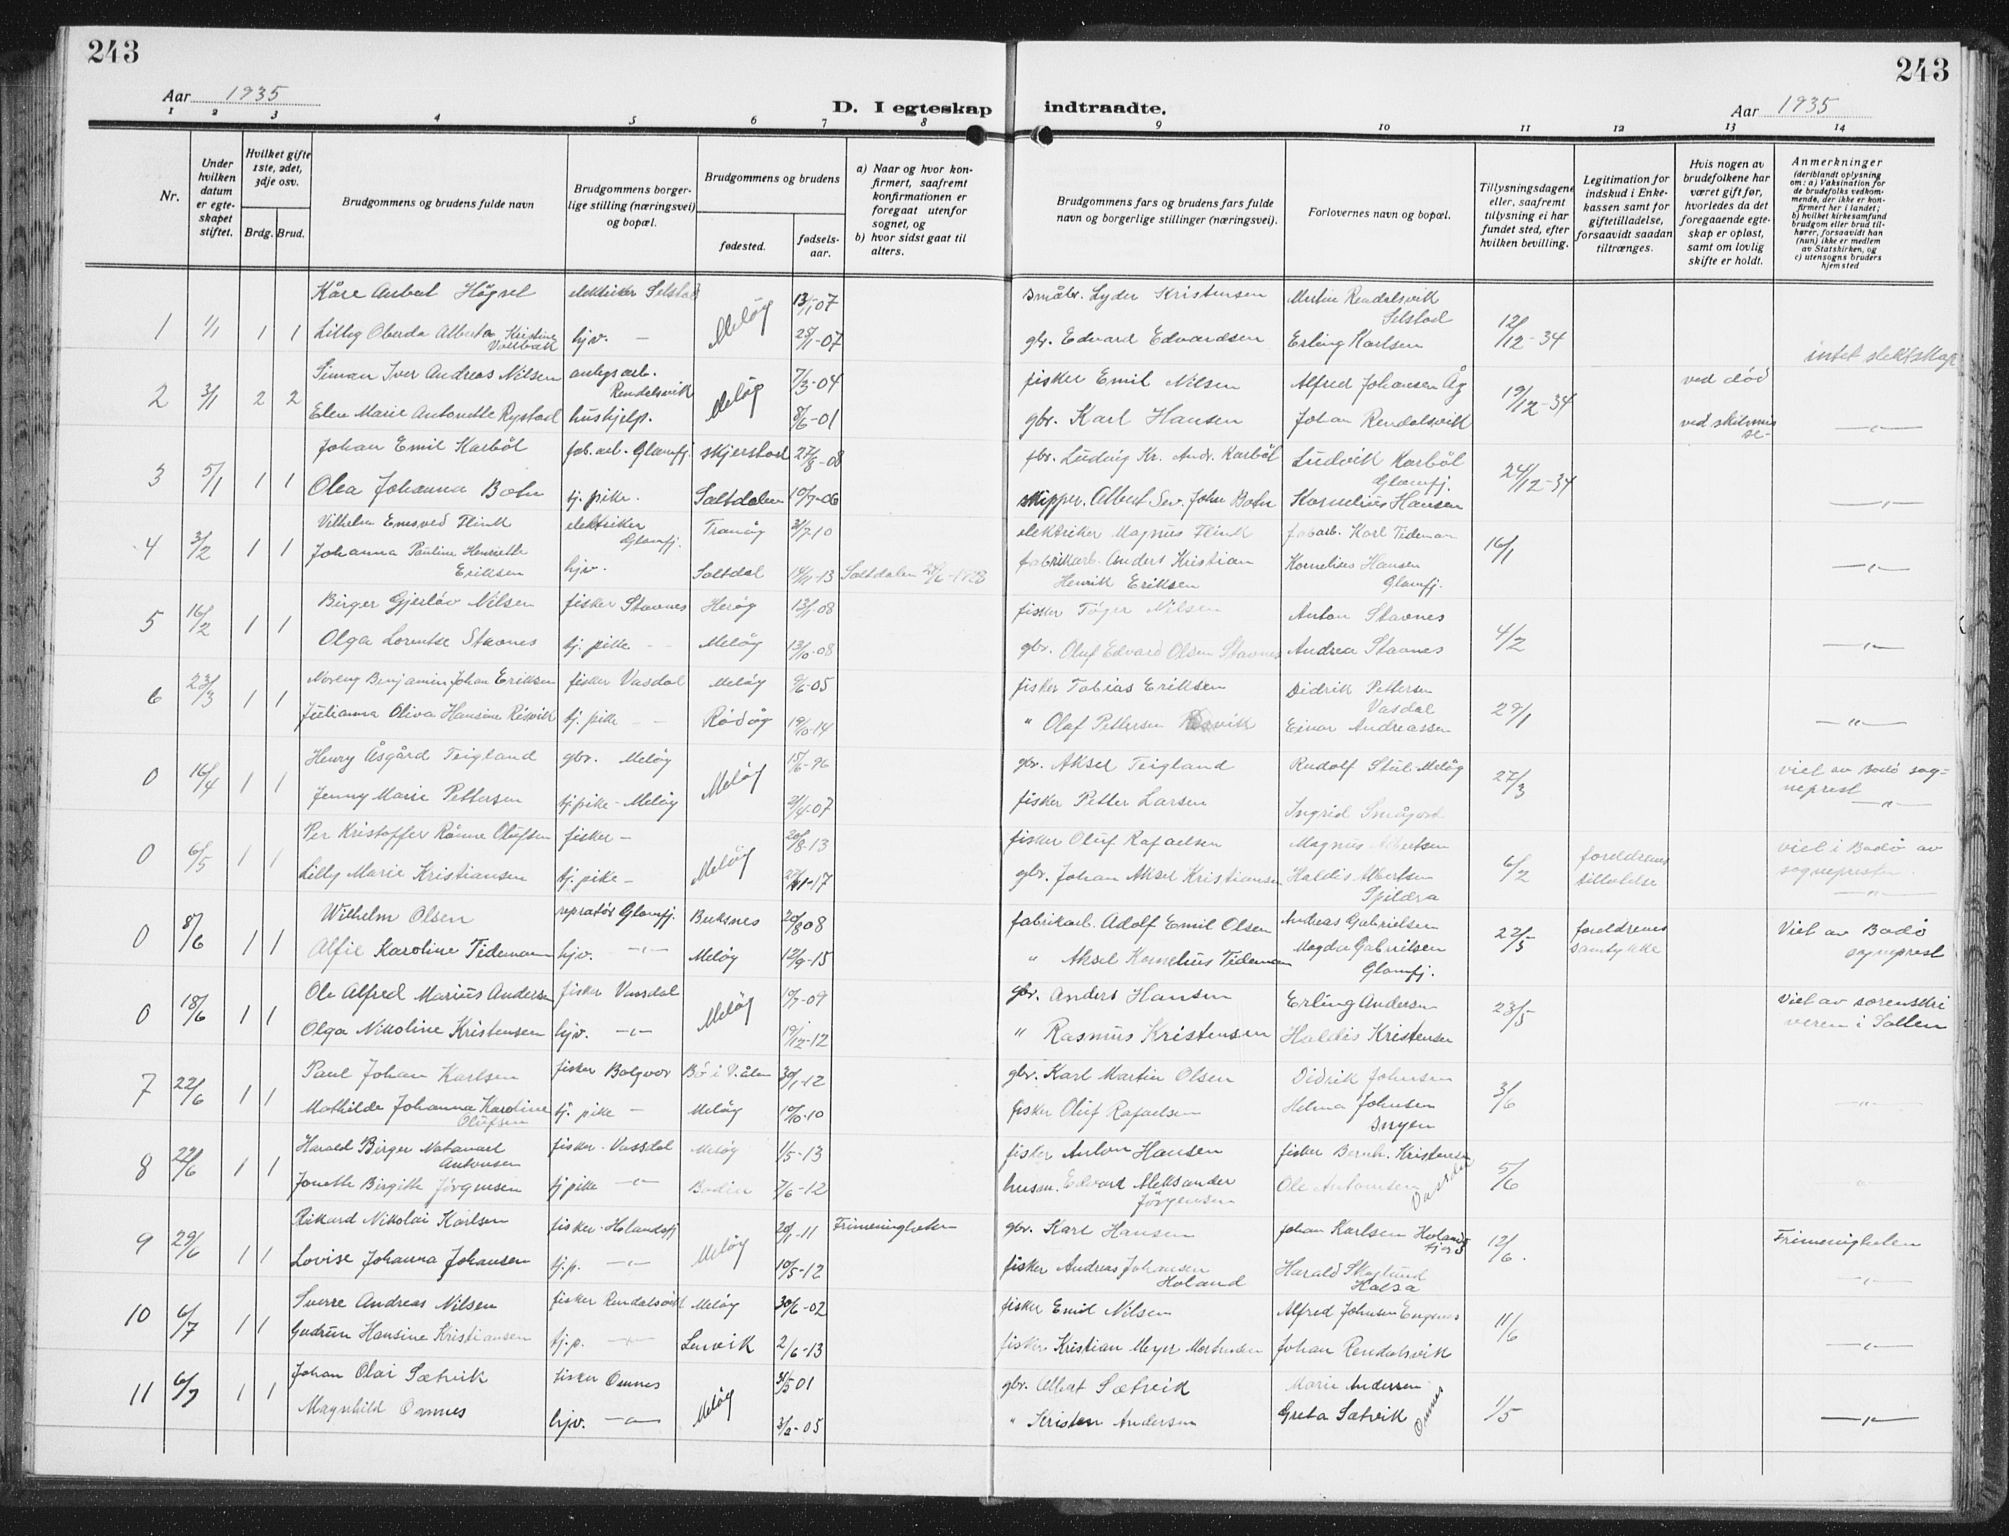 243
243
Aar 1935
D. I egteskap indtraadte.
Aar 1935
1 2 3 4 5 6 7 8 9 10 11 12 13 14
Nr.
Under hvilken datum er egteskapet stiftet.
Hvilket gifte 1ste, 2det, 3dje osv.
Brdg. Brud.
Brudgommens og brudens fulde navn
Brudgommens borgerlige stilling (næringsvei) og bopæl.
Brudgommens og brudens
fødested.
fødselsaar.
a) Naar og hvor konfirmert, saafremt konfirmationen er foregaat utenfor sognet, og
b) hvor sidst gaat til alters.
Brudgommens fars og brudens fars fulde navn og borgerlige stillinger (næringsvei).
Forlovernes navn og bopæl.
Tillysningsdagene eller, saafremt tillysning ei har fundet sted, efter hvilken bevilling.
Legitimation for indskud i Enkekassen samt for giftetilladelse, forsaavidt saadan tiltrænges.
Hvis nogen av brudefolkene har været gift før, hvorledes da det foregaaende egteskap er opløst, samt om lovlig skifte er holdt.
Anmerkninger (deriblandt oplysning om: a) Vaksination for de brudefolks vedkommende, der ikke er konfirmert her i landet; b) hvilket kirkesamfund brudgom eller brud tilhører, forsaavidt han (hun) ikke er medlem av Statskirken, og c) utensogns bruders hjemsted
Kåre Högset elektriker Selstad 13/1 07 småbr. Lyder Kristensen Martin Rendalsvik Selstad
1 1/1 1 1 Lilleg Alberta Kristine hjv. — Meløy 28/11-07 gbr. Edvard Edvardsen Erling Karlsen 12/12-34 intet slektskap
Simon Iver Andreas Nilsen anlegsarb. Rendalsvik 7/3-04 fisker Emil Nilsen Alfred Johansen Åg ved død
2 3/1 2 2 Elen Marie Antonette Rystad hushjelp. Meløy 8/6-01 gbr. Karl Hansen Johan Rendalsvik 19/12-34 ved skilsmisse- —"—
Johan Emil Karböl fab. arb. Glomfj. Skjerstad 27/8-08 gbr. Ludvig Kr. Andr. Karböl Ludvik Karböl Glomfj.
3 5/1 1 1 Olea Johanna Botn tj. pike. Saltdalen 10/7-06 skipper. Albert Sev. John Botn Kornelius Hansen 24/12-34 —"—
Vilhelm Flink elektriker Glomfj. Tranöy 3/7-10 elektriker Magnus Flink fabarb. Karl Tideman
4 3/2 1 1 Johanna Pauline Henriette Eriksen hjv. Saltdal 14/11-13 Saltdalen fabrikarb. Anders Kristian Henrik Eriksen Kornelius Hansen Glomfj. 16/1 —"—
Birger Gjerløv Nilsen fisker Stavnes Heröy 13/1-08 fisker Töger Nilsen Anton Stavnes
5 16/2 1 1 Olga Lorentse Stavnes tj. pike — Meløy 13/10-08 gbr. Oluf Edvard Olsen Stavnes Andrea Stavnes 4/2 —"—
Benjamin Johan Eriksen fisker Vasdal Meløy 9/6-05 fisker Tobias Eriksen Didrik Pettersen Vasdal
6 23/3 1 1 Julianna Oliva Hansine Risvik tj. pike — Rødøy 19/10-14 " Olaf Pettersen Einar Andreassen 29/1 —"—
Henry Åsgård Teigland gbr. Meløy 15/6-96 gbr. Aksel Teigland Rudolf Stül Meløy viet av Bodø sogneprest
0 16/4 1 1 Jenny Marie Pettersen tj. pike - Meløy Meløy 21/4-07 fisker Petter Larsen Ingrid 27/3 —"—
Per Kristoffer Rönne Olufsen fisker — 20/8-13 fisker Oluf Rafaelsen Magnus Albertsen viet i Bodø av sognepresten.
0 6/5 1 1 Lilly Marie Kristiansen tj. pike — Meløy gbr. Johan Aksel Kristiansen Haldis Albertsen Spildra 6/2 foreldrenes tillatelse —"—
Wilhelm Olsen repratör Glomfj. Buksnes 20/8 08 fabrikarb. Adolf Emil Olsen Andreas Gabrielsen Viet av Bodø sogneprest
0 8/6 1 1 Alfie Karoline Tidemann hjv. —"— Meløy 12/9-15 " Aksel Kornelius Tideman Magda Gabrielsen Glomfj. 22/5 foreldrenes samtykke
Ole Alfred Marius Andersen fisker Vassdal 10/7-09 gbr. Anders Hansen Erling Andersen Viet av sorenskriveren i Salten
0 18/6 1 1 Olga Nikoline Kristensen hjv. —"— Meløy 19/12-12 " Rasmus Kristensen Haldis Kristensen 23/5
Paul Johan Karlsen fisker Bolgvær Bø i V.ålen 30/1-12 gbr. Karl Martin Olsen Didrik Johnsen
7 22/6 1 1 Mathilde Johanna Karoline Olufsen tj. pike — Meløy 10/10-10 fisker Oluf Rafaelsen Helma Johnsen 3/6 —"—
Harald Birger Natanael Antonsen fisker - Vassdal Meløy 1/5-13 fisker Anton Hansen fisker Bernh. Kristensen Vassdal
8 22/6 1 1 Jonette Birgitte Jörgensen tj pike —"— Bodin 7/6-12 husm. Edvart Aleksander Jörgensen Ole Antonsen 5/6 —"—
Rikard Nikolai Karlsen fisker - Holandsfj 20/1-11 Frimenigheten gbr. Karl Hansen Johan Karlsen Holandsfjord Frimenigheten
9 29/6 1 1 Lovise Johanna Johansen tj. p. —"— Meløy 10/5-12 fisker Andreas Johansen Holand Harald Skoglund Halsa 12/6. —"—
Sverre Andreas Nilsen fisker Rendalsvik Meløy 30/6-02 fisker Emil Nilsen Alfred Johnsen
10 6/7 1 1 Gudrun Hansine Kristiansen tj. p. —"— Lenvik 2/6-13 fisker Kristian Meyer Johan Rendalsvik 11/6 —"—
Johan Olai Sætvik fisker Ørnes 31/5 01 gbr. Albert Sætvik Marie Andersen
11 6/7 1 1 Magnhild Ornnes hjv. —"— Meløy 3/2-05 " Kristen Andersen Greta Sætvik Ørnes 1/5 —"—